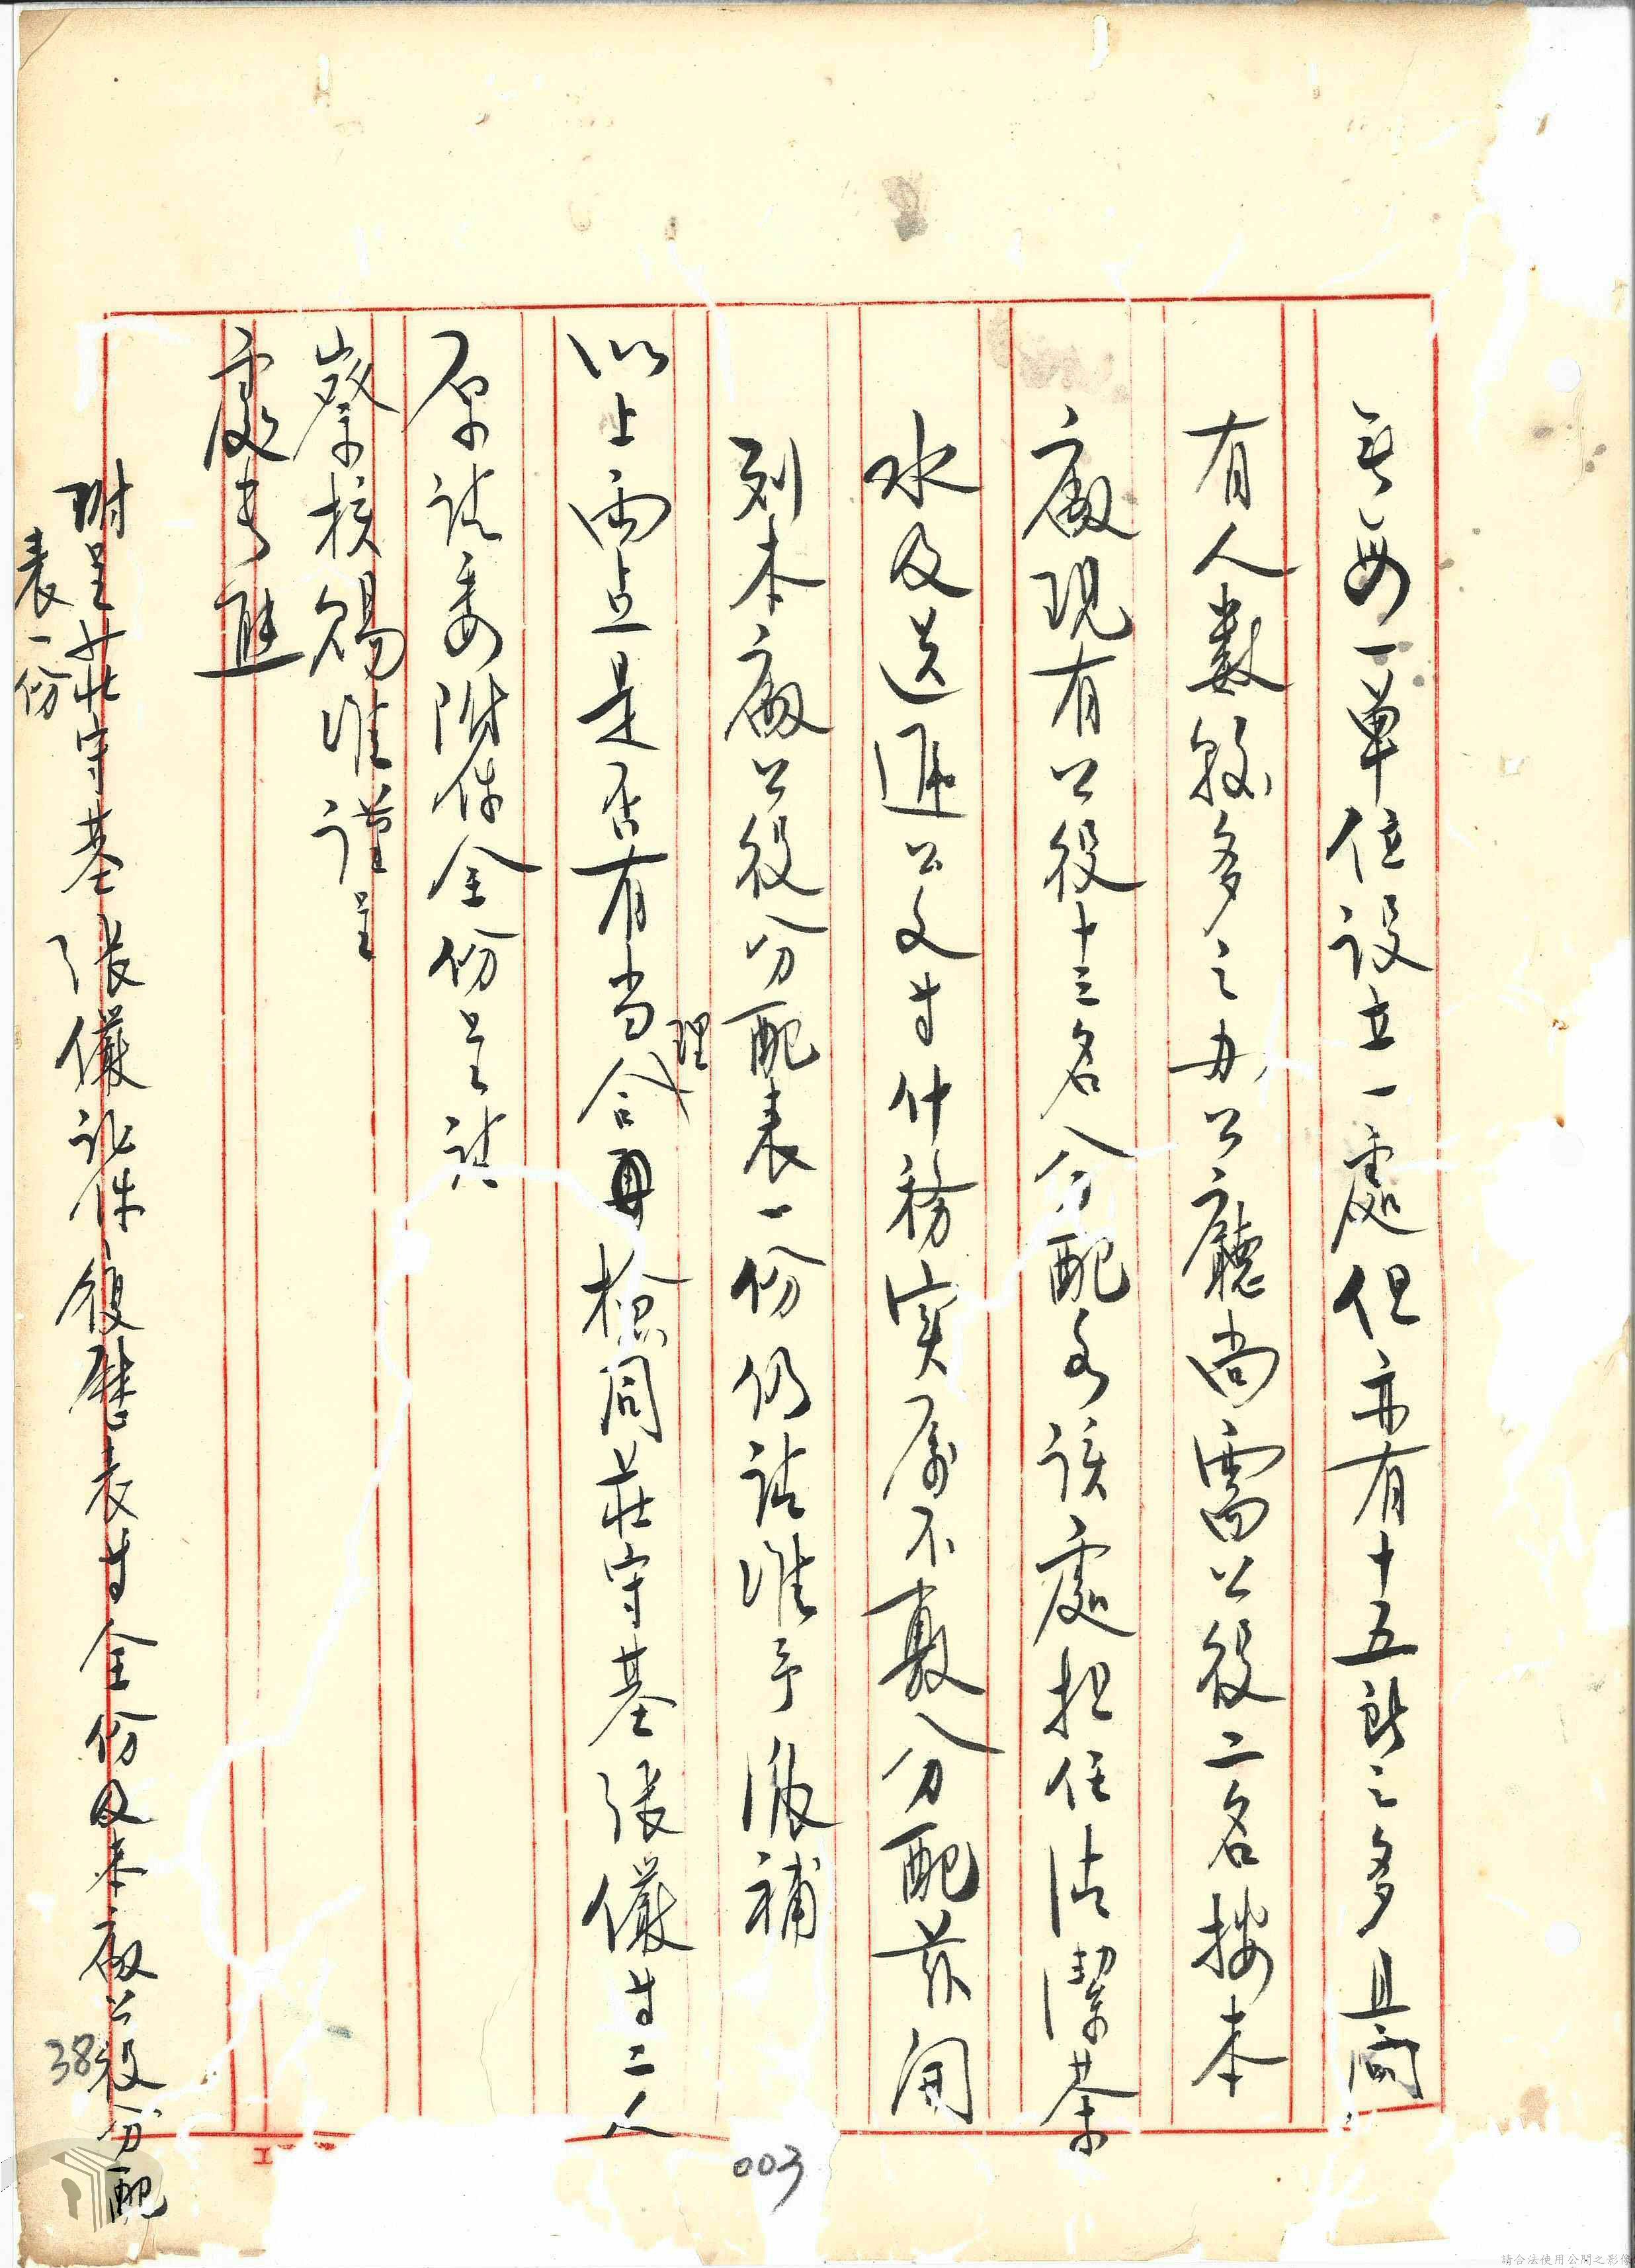 每一單位設立一處但亦有十五處之多且尚
有人數較多之办公廳尚需公役二名按本
廠現有公役十三名分配各該處担任清潔茶
水及送遞公文等什務实屬不敷分配茲開
列本廠公役分配表一份仍請准予派補
以上両点是否有当合再檢同莊守基張儀等二人
理
原請委附件全份呈請
詧核賜准謹呈
處長熊
附呈莊守基張儀証件履歷表等全份及本廠公役分配
表一份
38
003
請合法使用公開之影像